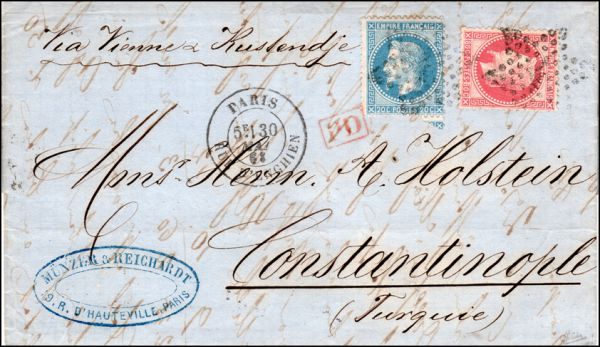 Via Vienne & Kustendje
EMPIRE FRANÇAIS
20C POSTES 20C
PARIS
5E 30
MAI
68
PD
Monsr Herm. A. Holstein
Constantinople
(Turquie)
MUNZER & REICHARDT
9. R. D'HAUTEVILLE. PARIS